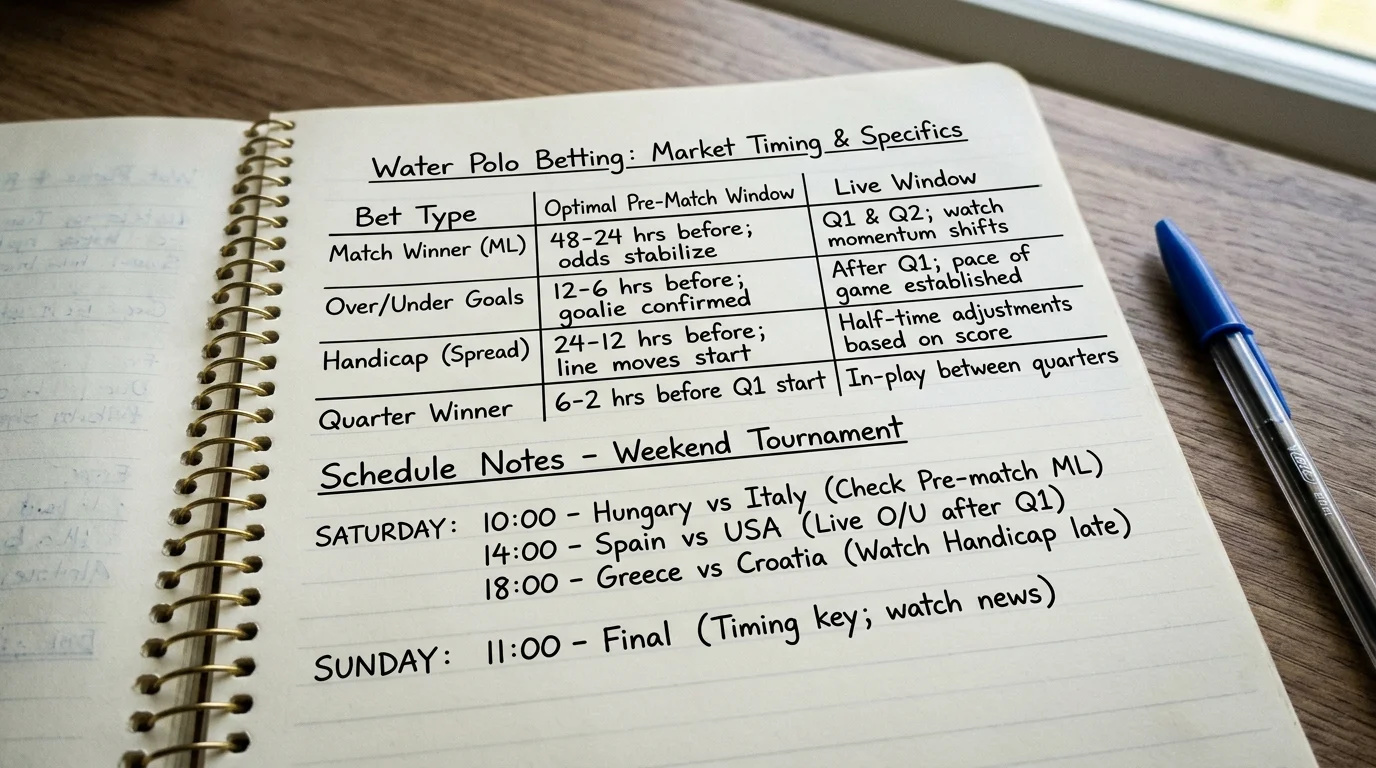 Water Polo Betting: Market Timing & Specifics
Bet Type
Optimal Pre-Match Window
Live Window
Match Winner (ML)
48-24 hrs before;
odds stabilize
Q1 & Q2; watch
momentum shifts
Over/Under Goals
12-6 hrs before;
goalie confirmed
After Q1; pace of
game established
Handicap (Spread)
24-12 hrs before;
line moves start
Half-time adjustments
based on score
Quarter Winner
6-2 hrs before Q1 start
In-play between quarters
Schedule Notes - Weekend Tournament
SATURDAY: 10:00 - Hungary vs Italy (Check Pre-match ML)
14:00 - Spain vs USA (Live O/U after Q1)
18:00 - Greece vs Croatia (Watch Handicap late)
SUNDAY: 11:00 - Final (Timing key; watch news)